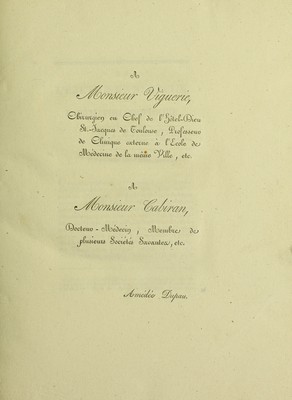 A
Monsieur Viguerie,
Chirurgien en Chef de l'Hôtel-Dieu
St.-Jacques de Toulouse, Professeur
de Clinique externe à l'Ecole de
Médecine de la même Ville, etc.
A
Monsieur Cabiran,
Docteur-Médecin, Membre de
plusieurs Sociétés Savantes, etc.
Amédée Dupau.